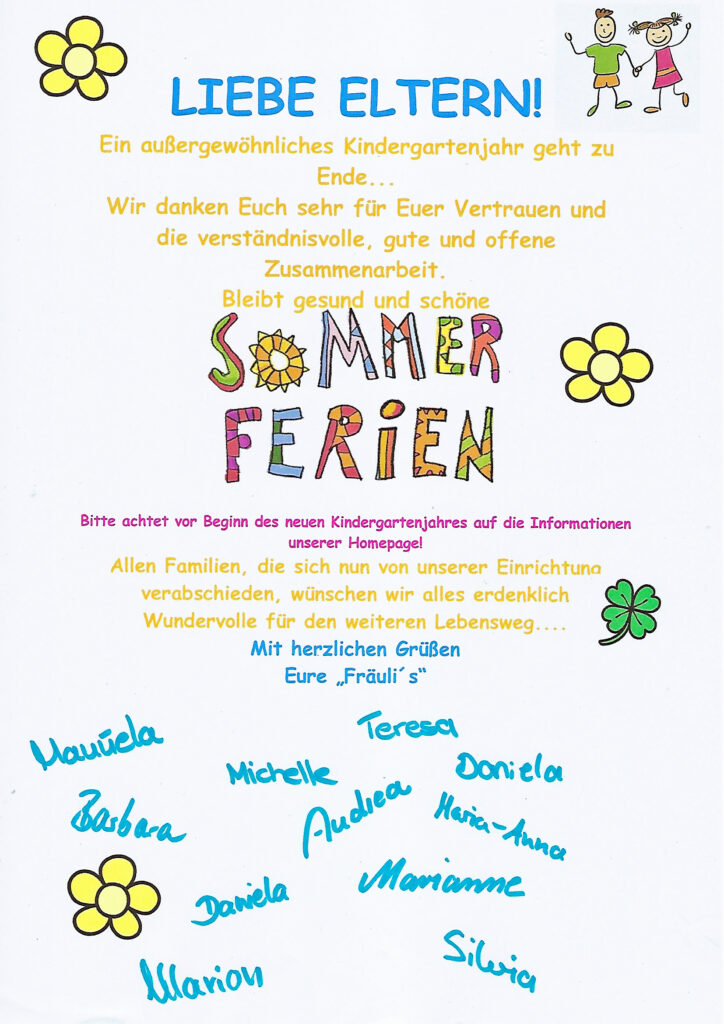 LIEBE ELTERN!
Ein außergewöhnliches Kindergartenjahr geht zu
Ende...
Wir danken Euch sehr für Euer Vertrauen und
die verständnisvolle, gute und offene
Zusammenarbeit.
Bleibt gesund und schöne
SOMMER
FERiEN
Bitte achtet vor Beginn des neuen Kindergartenjahres auf die Informationen
unserer Homepage!
Allen Familien, die sich nun von unserer Einrichtung
verabschieden, wünschen wir alles erdenklich
Wundervolle für den weiteren Lebensweg....
Mit herzlichen Grüßen
Eure „Fräuli´s“
Teresa
Manuela
Michelle
Daniela
Barbara
Andrea
Maria-Anna
Daniela
Marianne
Silvia
Marion